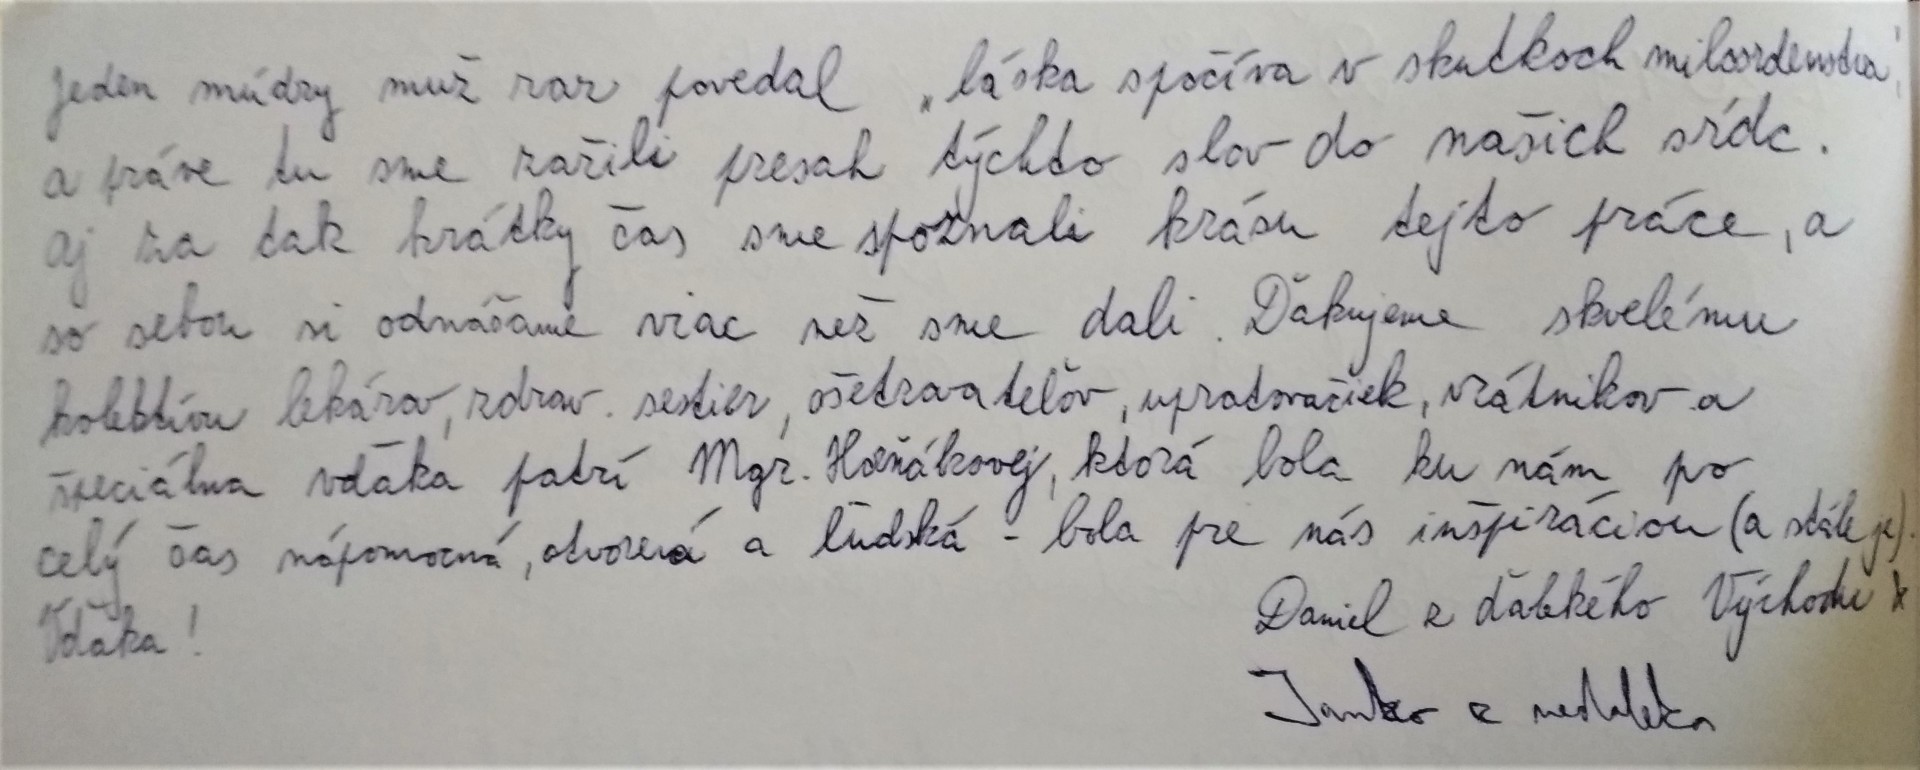 Jeden múdry muž raz povedal „láska spočíva v skutkoch milosrdenstva"
a práve tu sme zažili presah týchto slov do našich sŕdc.
Aj za tak krátky čas sme spoznali krásu tejto práce, a
so sebou si odnášame viac než sme dali. Ďakujeme skvelému
kolektívu lekárov, zdrav. sestier, ošetrovateľov, upratovačiek, vrátnikov a
špeciálna vďaka patrí Mgr. ktorá bola ku nám po
celý čas nápomocná, otvorená a ľudská - bola pre nás inšpiráciou (a stále je).
Vďaka!
Daniel z ďalekého Východu
Janko z neďaleka